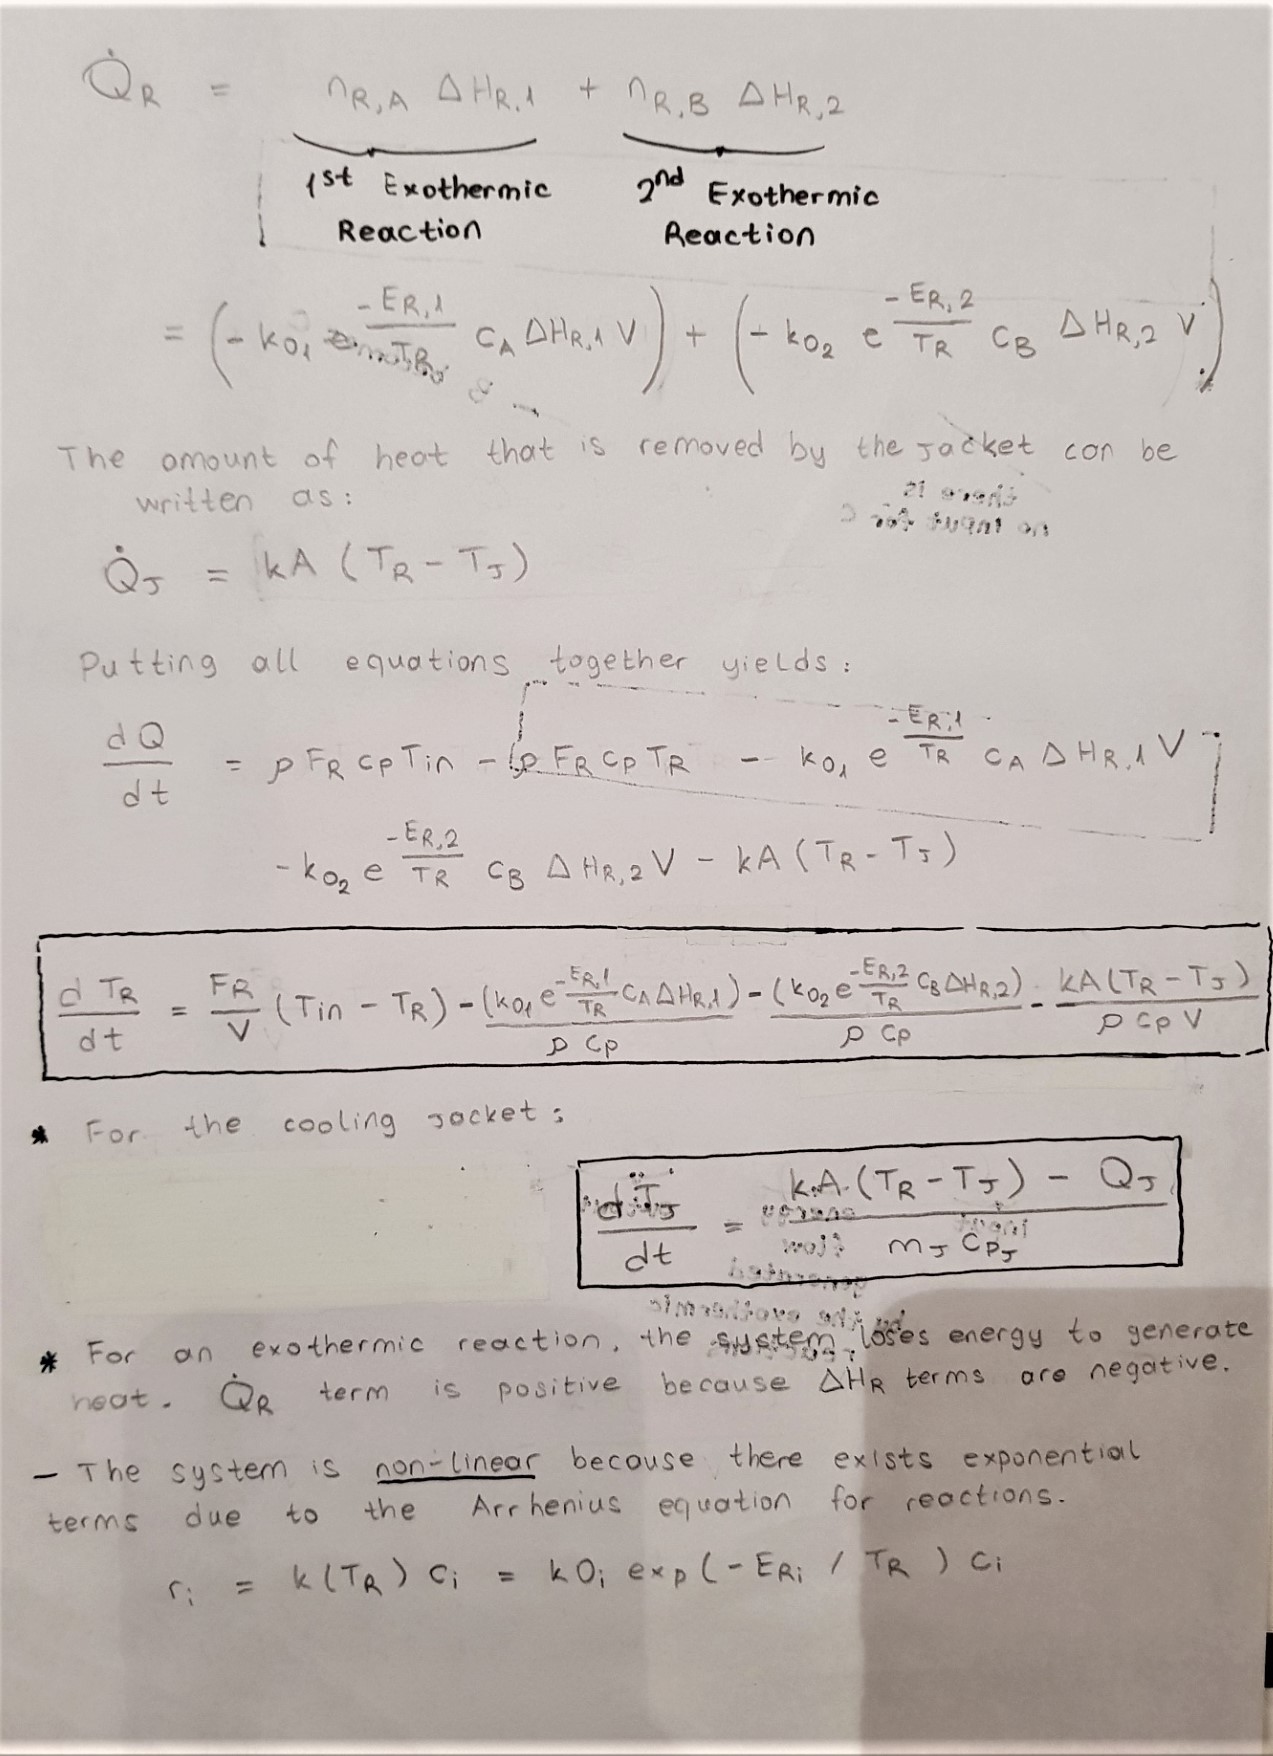 Q̇R = nR,A ΔHR,1 + nR,B ΔHR,2
1st Exothermic Reaction
2nd Exothermic Reaction
= (- k01 e^(-ER,1/TR) CA ΔHR,1 V) + (- k02 e^(-ER,2/TR) CB ΔHR,2 V)
The amount of heat that is removed by the jacket can be
written as:
there is
no input for C
Q̇J = kA (TR - TJ)
Putting all equations together yields:
dQ/dt = ρ FR cp Tin - ρ FR cp TR - k01 e^(-ER,1/TR) CA ΔHR,1 V
- k02 e^(-ER,2/TR) CB ΔHR,2 V - kA (TR - TJ)
dTR/dt = FR/V (Tin - TR) - (k01 e^(-ER,1/TR) CA ΔHR,1)/ρ cp - (k02 e^(-ER,2/TR) CB ΔHR,2)/ρ cp - kA (TR - TJ)/ρ cp V
* For the cooling jacket:
dTJ/dt = (k.A.(TR - TJ) - QJ)/mJ CPJ
energy
flow
generated
by the exothermic
* For an exothermic reaction, the system loses energy to generate
heat. Q̇R term is positive because ΔHR terms are negative.
- The system is non-linear because there exists exponential
terms due to the Arrhenius equation for reactions.
ri = k(TR) Ci = k0i exp(-ERi / TR) Ci